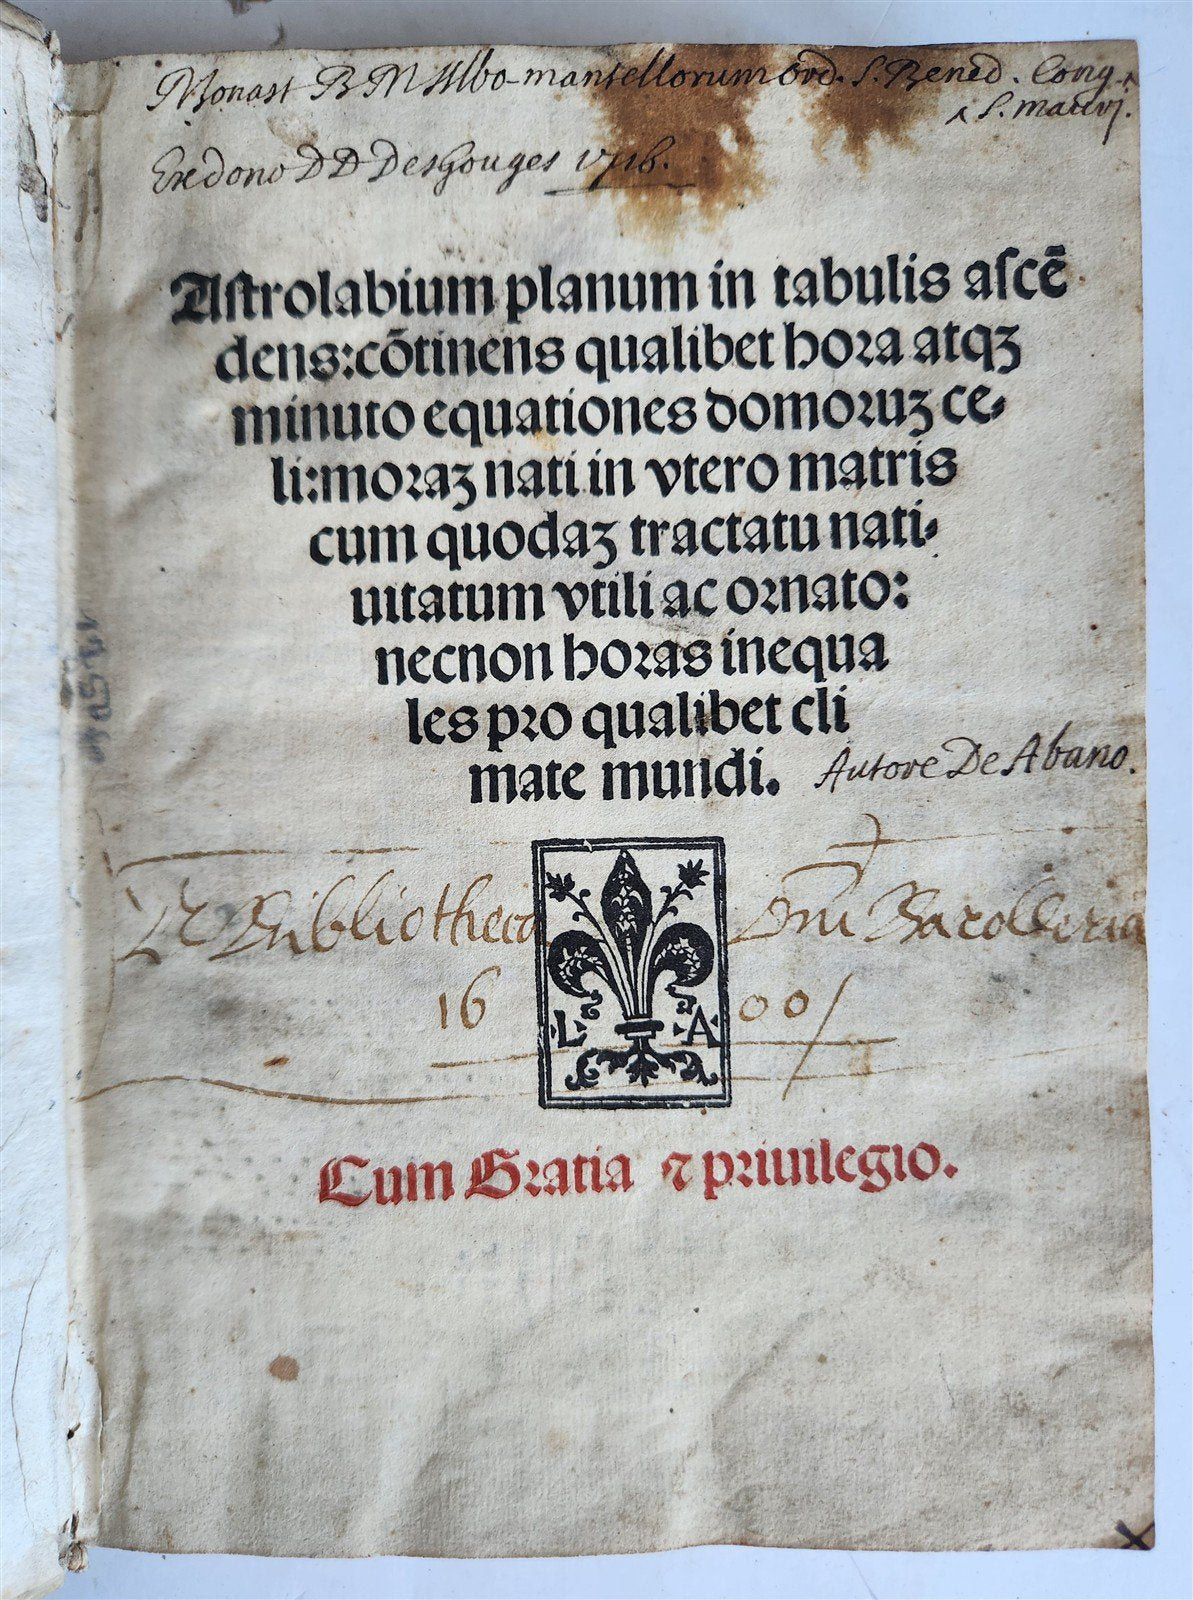 Monast B M Albo-mantellorum ord. S. Bened. Cong.
^ S. mauri.
Ex dono D D Deshouges 1716.
Astrolabium planum in tabulis ascē
dens: cōtinens qualibet hora atqꝫ
minuto equationes domoruꝫ ce-
li: moraꝫ nati in vtero matris
cum quodaꝫ tractatu nati-
uitatum vtili ac ornato:
necnon horas inequa
les pro qualibet cli
mate mundi.
Autore De Abano.
Bibliotheca Dni
16 00
L A
Cum Gratia ⁊ priuilegio.